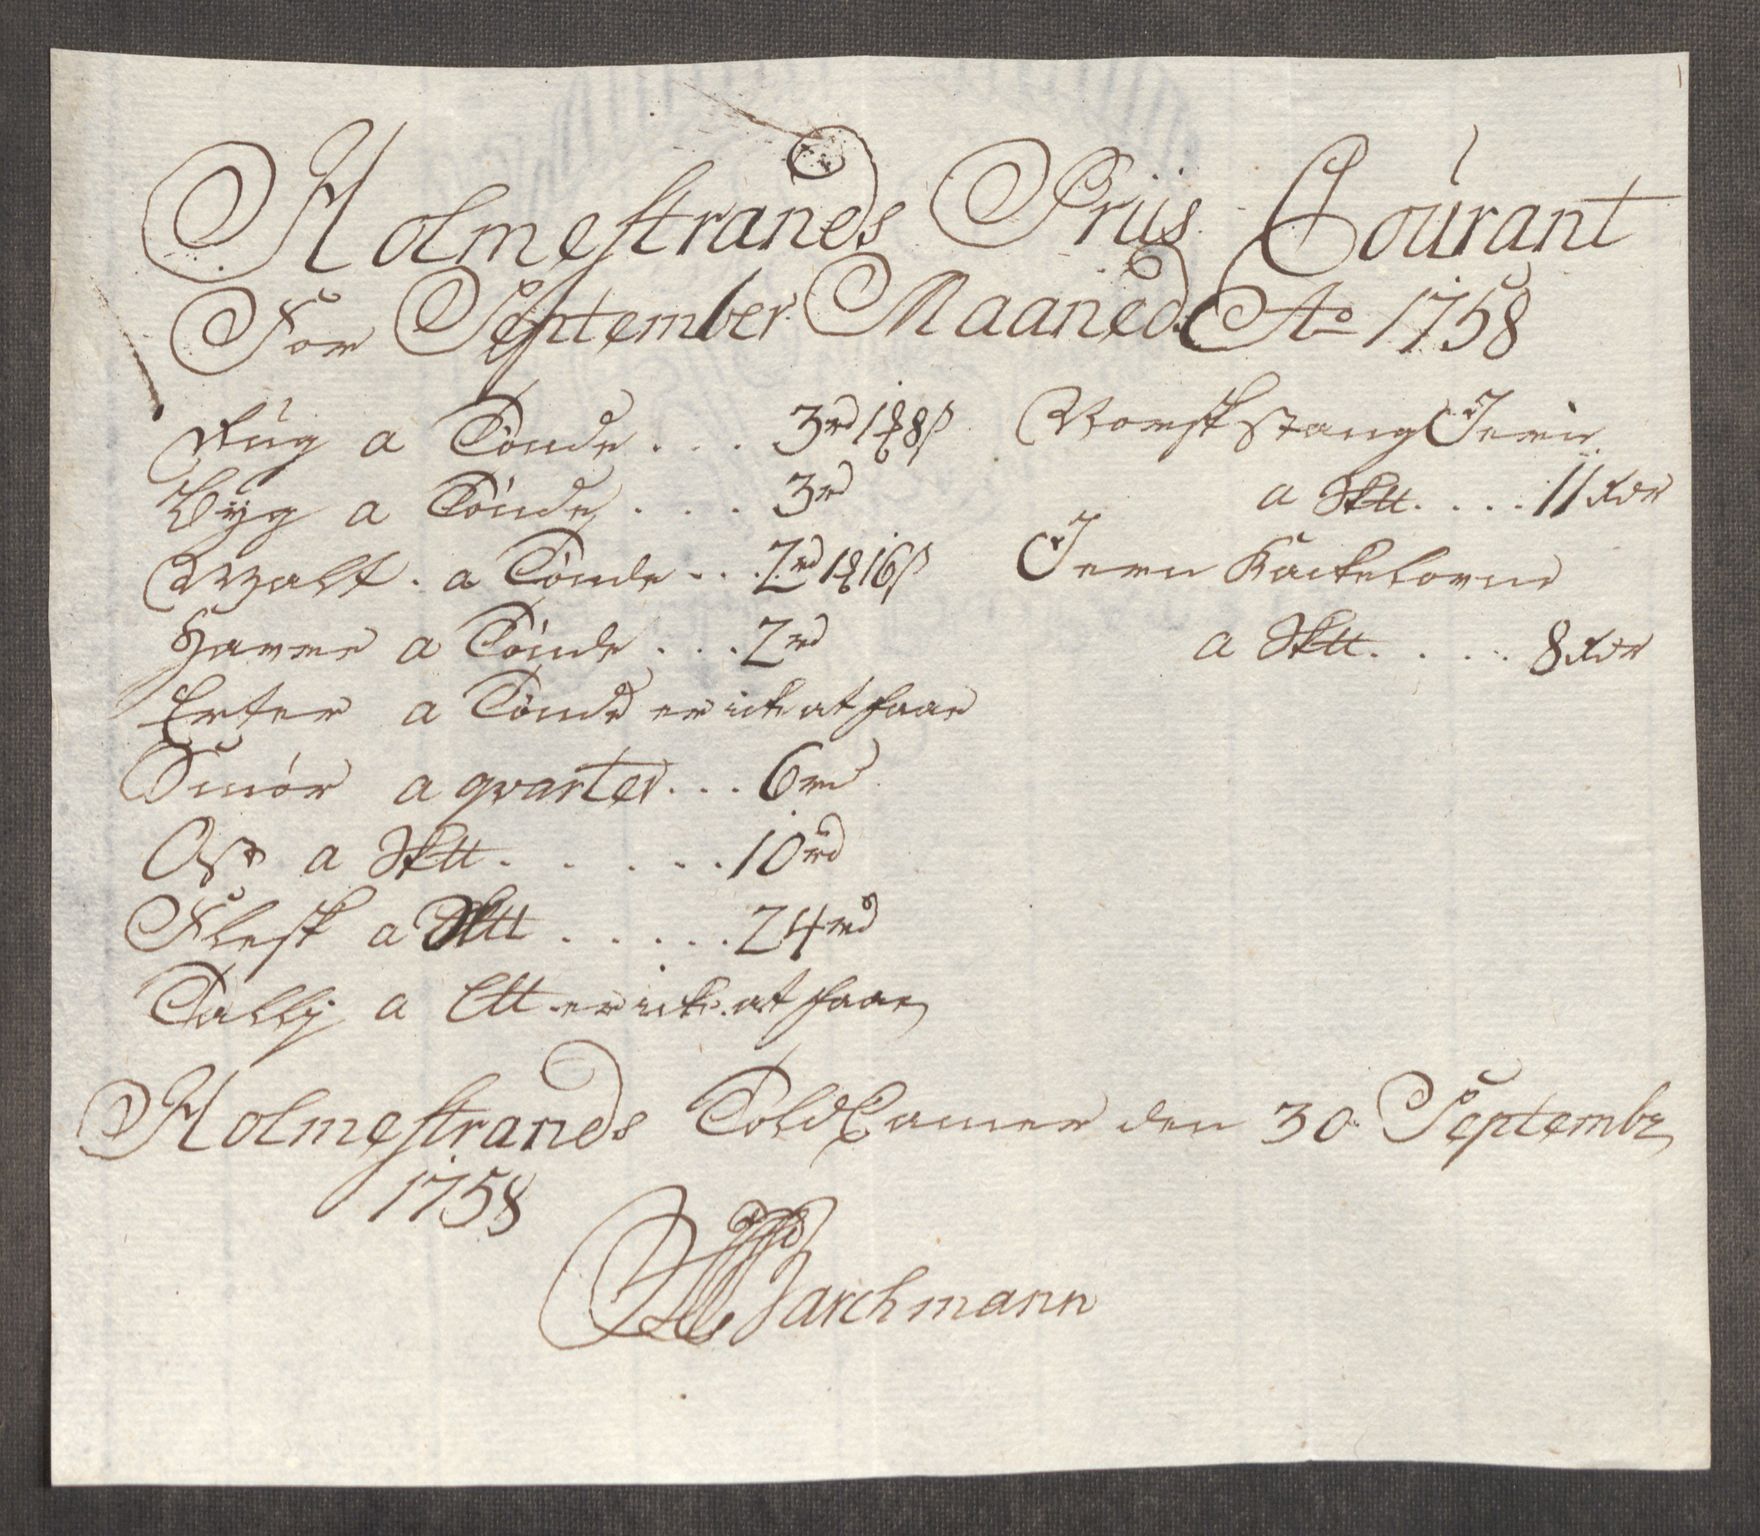 Holmestrands Priis Courant
For September Maaned Ao 1758
Rúg a Tönde . . . 3rd 1 8s
Byg a Tönde . . . 3rd
Malt . a Tönde . . . 2rd 1 16s
Havre a Tönde . . . 2rd
Erter a Tönde er ick at faae
Smör a qvarter . . . 6rd
Ost a Sktt . . . . . 10rd
Flesk a Sktt . . . . . 24rd
Tallig a Ltt er ick at faae
Norsk Stang Jern
a Sktt . . . . 11 Rdr
Jern Kackelovne
a Sktt . . . . 8 Rdr
Holmestrands Told Camer den 30 Septembr
1758
Barchmann